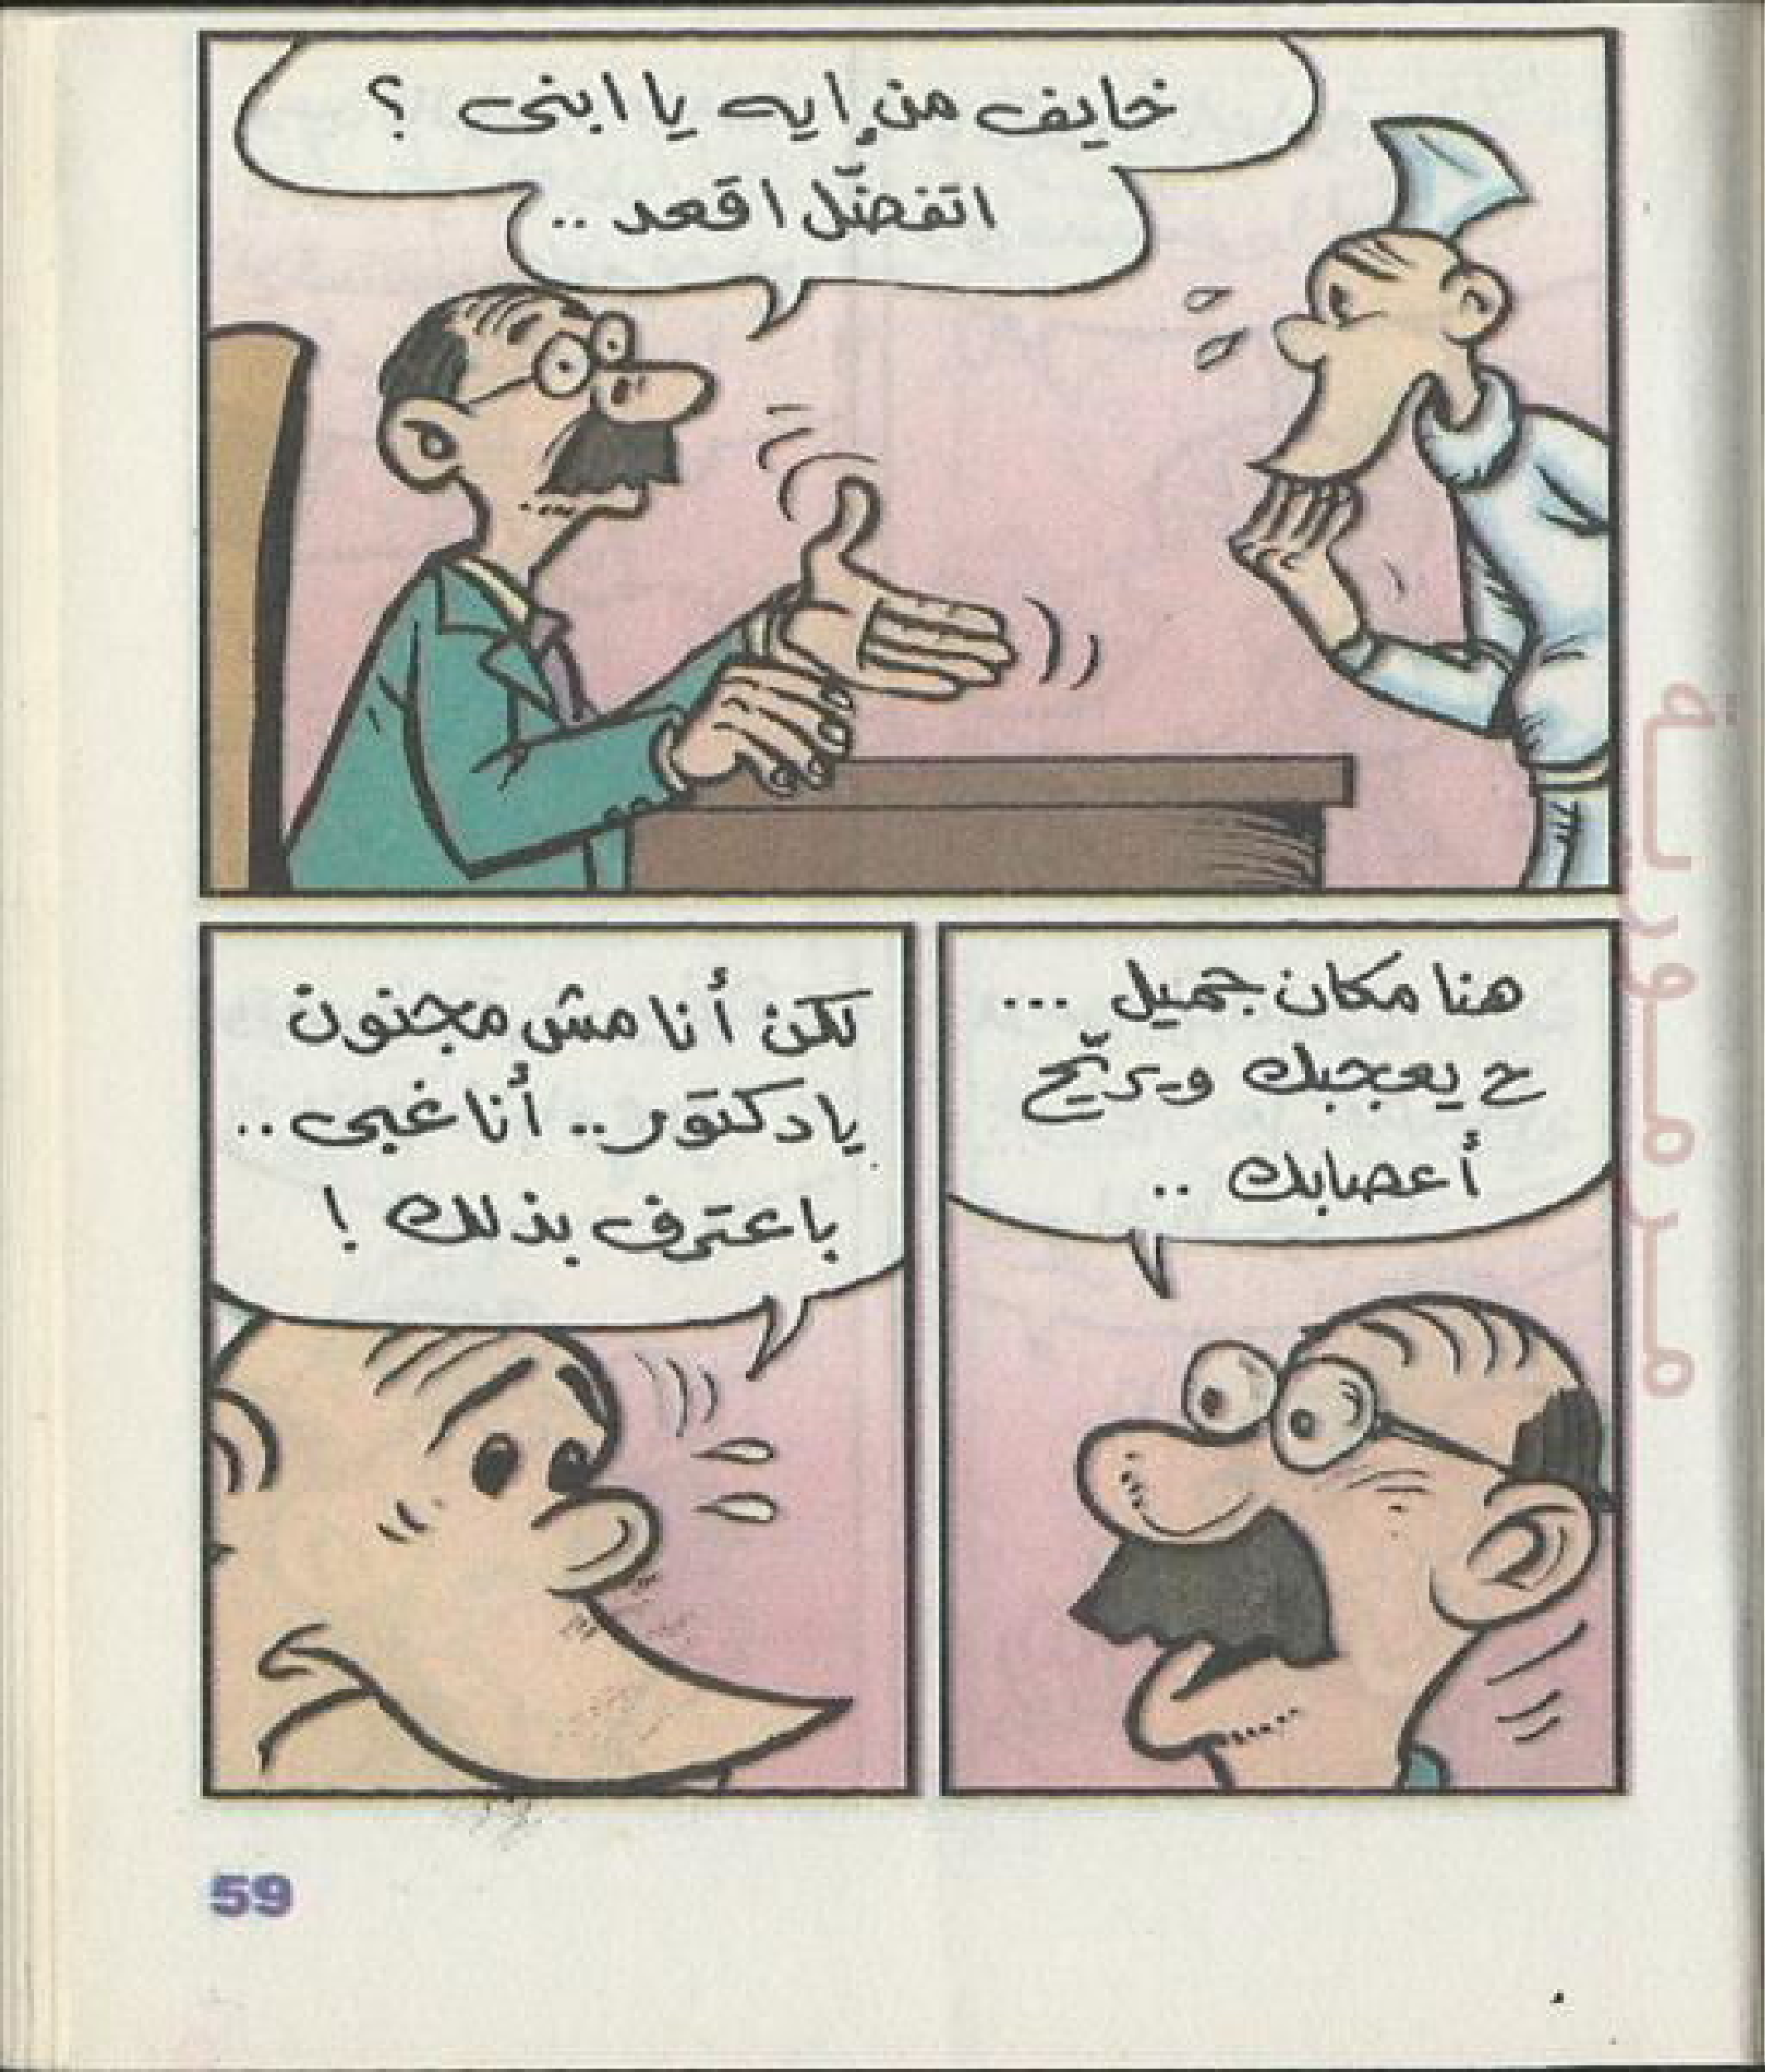 خايف من إيه يا ابنى ؟
اتفضّل اقعد ..
هنا مكان جميل ...
ح يعجبك ويريّح
أعصابك ..
لكن أنا مش مجنون
يا دكتور .. أنا غبى ..
باعترف بذلك !
59